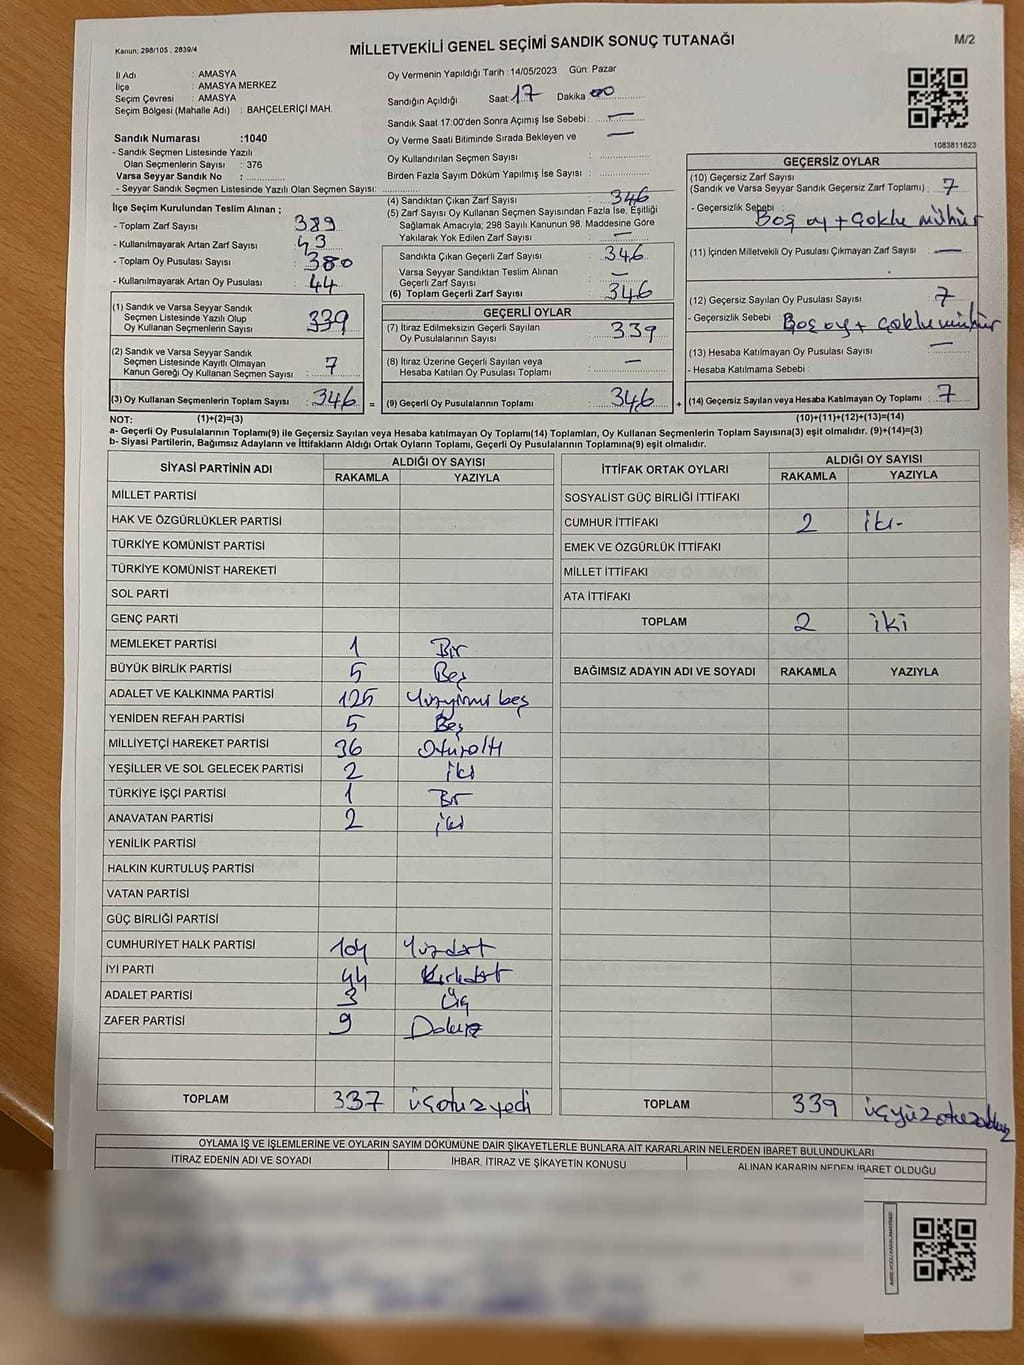 Kanun: 298/105 , 2839/4
MİLLETVEKİLİ GENEL SEÇİMİ SANDIK SONUÇ TUTANAĞI
M/2
İl Adı : AMASYA
İlçe : AMASYA MERKEZ
Seçim Çevresi : AMASYA
Seçim Bölgesi (Mahalle Adı) : BAHÇELERİÇİ MAH.
Sandık Numarası :1040
- Sandık Seçmen Listesinde Yazılı
Olan Seçmenlerin Sayısı : 376
Varsa Seyyar Sandık No :
- Seyyar Sandık Seçmen Listesinde Yazılı Olan Seçmen Sayısı:
Oy Vermenin Yapıldığı Tarih : 14/05/2023 Gün: Pazar
Sandığın Açıldığı Saat: 17 Dakika: 00
Sandık Saat 17:00'den Sonra Açımış İse Sebebi : —
Oy Verme Saati Bitiminde Sırada Bekleyen ve —
Oy Kullandırılan Seçmen Sayısı :
Birden Fazla Sayım Döküm Yapılmış İse Sayısı :
1083811623
İlçe Seçim Kurulundan Teslim Alınan ;
- Toplam Zarf Sayısı : 389
- Kullanılmayarak Artan Zarf Sayısı : 43
- Toplam Oy Pusulası Sayısı : 380
- Kullanılmayarak Artan Oy Pusulası : 44
(1) Sandık ve Varsa Seyyar Sandık
Seçmen Listesinde Yazılı Olup
Oy Kullanan Seçmenlerin Sayısı : 339
(2) Sandık ve Varsa Seyyar Sandık
Seçmen Listesinde Kayıtlı Olmayan
Kanun Gereği Oy Kullanan Seçmen Sayısı : 7
(3) Oy Kullanan Seçmenlerin Toplam Sayısı : 346 =
(4) Sandıktan Çıkan Zarf Sayısı : 346
(5) Zarf Sayısı Oy Kullanan Seçmen Sayısından Fazla İse, Eşitliği
Sağlamak Amacıyla; 298 Sayılı Kanunun 98. Maddesine Göre
Yakılarak Yok Edilen Zarf Sayısı : —
Sandıkta Çıkan Geçerli Zarf Sayısı : 346
Varsa Seyyar Sandıktan Teslim Alınan
Geçerli Zarf Sayısı : —
(6) Toplam Geçerli Zarf Sayısı : 346
GEÇERLİ OYLAR
(7) İtiraz Edilmeksizin Geçerli Sayılan
Oy Pusulalarının Sayısı : 339
(8) İtiraz Üzerine Geçerli Sayılan veya
Hesaba Katılan Oy Pusulası Toplamı : —
(9) Geçerli Oy Pusulalarının Toplamı : 346 +
GEÇERSİZ OYLAR
(10) Geçersiz Zarf Sayısı
(Sandık ve Varsa Seyyar Sandık Geçersiz Zarf Toplamı) : 7
- Geçersizlik Sebebi : Boş oy + çoklu mühür
(11) İçinden Milletvekili Oy Pusulası Çıkmayan Zarf Sayısı : —
(12) Geçersiz Sayılan Oy Pusulası Sayısı : 7
- Geçersizlik Sebebi : Boş oy + çoklu mühür
(13) Hesaba Katılmayan Oy Pusulası Sayısı : —
- Hesaba Katılmama Sebebi :
(14) Geçersiz Sayılan veya Hesaba Katılmayan Oy Toplamı : 7
NOT: (1)+(2)=(3)
(10)+(11)+(12)+(13)=(14)
a- Geçerli Oy Pusulalarının Toplamı(9) ile Geçersiz Sayılan veya Hesaba katılmayan Oy Toplamı(14) Toplamları, Oy Kullanan Seçmenlerin Toplam Sayısına(3) eşit olmalıdır. (9)+(14)=(3)
b- Siyasi Partilerin, Bağımsız Adayların ve İttifakların Aldığı Ortak Oyların Toplamı, Geçerli Oy Pusulalarının Toplamına(9) eşit olmalıdır.
SİYASİ PARTİNİN ADI ALDIĞI OY SAYISI
RAKAMLA YAZIYLA
MİLLET PARTİSİ
HAK VE ÖZGÜRLÜKLER PARTİSİ
TÜRKİYE KOMÜNİST PARTİSİ
TÜRKİYE KOMÜNİST HAREKETİ
SOL PARTİ
GENÇ PARTİ
MEMLEKET PARTİSİ 1 Bir
BÜYÜK BİRLİK PARTİSİ 5 Beş
ADALET VE KALKINMA PARTİSİ 125 Yüzyirmi beş
YENİDEN REFAH PARTİSİ 5 Beş
MİLLİYETÇİ HAREKET PARTİSİ 36 Otuzaltı
YEŞİLLER VE SOL GELECEK PARTİSİ 2 İki
TÜRKİYE İŞÇİ PARTİSİ 1 Bir
ANAVATAN PARTİSİ 2 iki
YENİLİK PARTİSİ
HALKIN KURTULUŞ PARTİSİ
VATAN PARTİSİ
GÜÇ BİRLİĞİ PARTİSİ
CUMHURİYET HALK PARTİSİ 104 Yüzdört
İYİ PARTİ 44 Kırkdört
ADALET PARTİSİ 3 Üç
ZAFER PARTİSİ 9 Dokuz
TOPLAM 337 üçotuzyedi
İTTİFAK ORTAK OYLARI ALDIĞI OY SAYISI
RAKAMLA YAZIYLA
SOSYALİST GÜÇ BİRLİĞİ İTTİFAKI
CUMHUR İTTİFAKI 2 iki-
EMEK VE ÖZGÜRLÜK İTTİFAKI
MİLLET İTTİFAKI
ATA İTTİFAKI
TOPLAM 2 iki
BAĞIMSIZ ADAYIN ADI VE SOYADI RAKAMLA YAZIYLA
TOPLAM 339 üçyüzotuzdokuz
OYLAMA İŞ VE İŞLEMLERİNE VE OYLARIN SAYIM DÖKÜMÜNE DAİR ŞİKAYETLERLE BUNLARA AİT KARARLARIN NELERDEN İBARET BULUNDUKLARI
İTİRAZ EDENİN ADI VE SOYADI İHBAR, İTİRAZ VE ŞİKAYETİN KONUSU ALINAN KARARIN NEDEN İBARET OLDUĞU